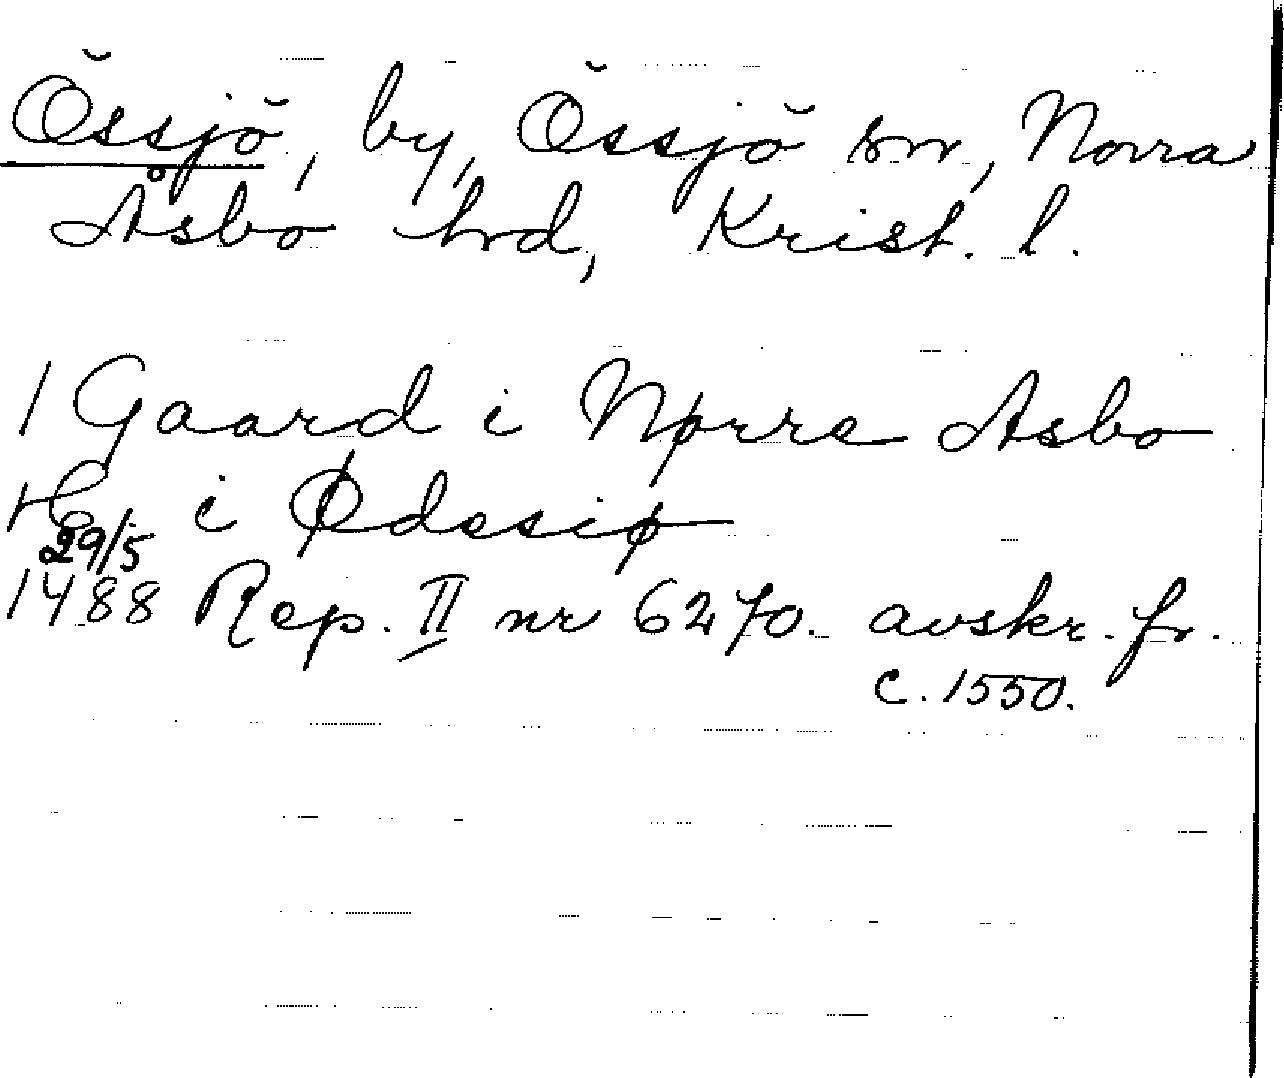 Össjö, by, Össjö sn, Norra
Åsbo hrd, Krist. l.
1 Gaard i Nørre Asbo
H. i Ødessiø
29/5
1488 Rep. II nr 6270. avskr. fr.
c. 1550.